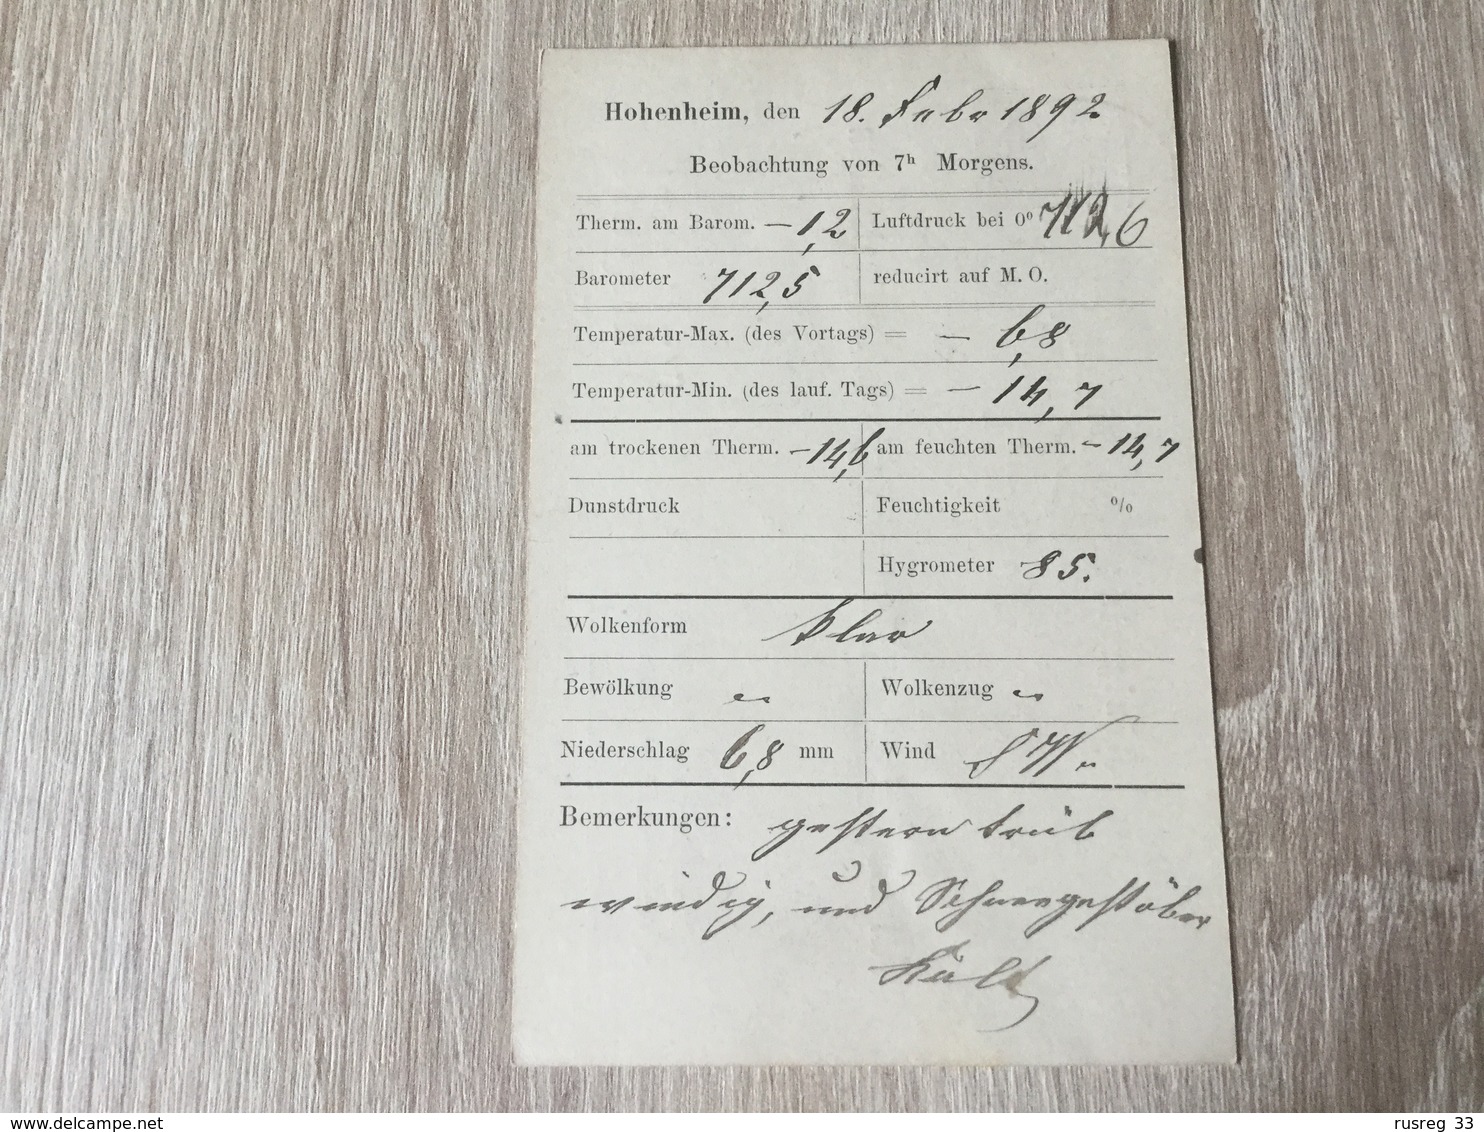 Hohenheim, den 18. Febr 1892
Beobachtung von 7h Morgens.
Therm. am Barom. -1,2 Luftdruck bei 0° 712,6
Barometer 712,5 reducirt auf M. O.
Temperatur-Max. (des Vortags) = - 6,8
Temperatur-Min. (des lauf. Tags) = - 14,7
am trockenen Therm. -14,6 am feuchten Therm. -14,7
Dunstdruck Feuchtigkeit %
Hygrometer 85.
Wolkenform klar
Bewölkung Wolkenzug
Niederschlag 6,8 mm Wind SW.
Bemerkungen: gestern trüb
windig, und Schneegestöber
rusreg 33